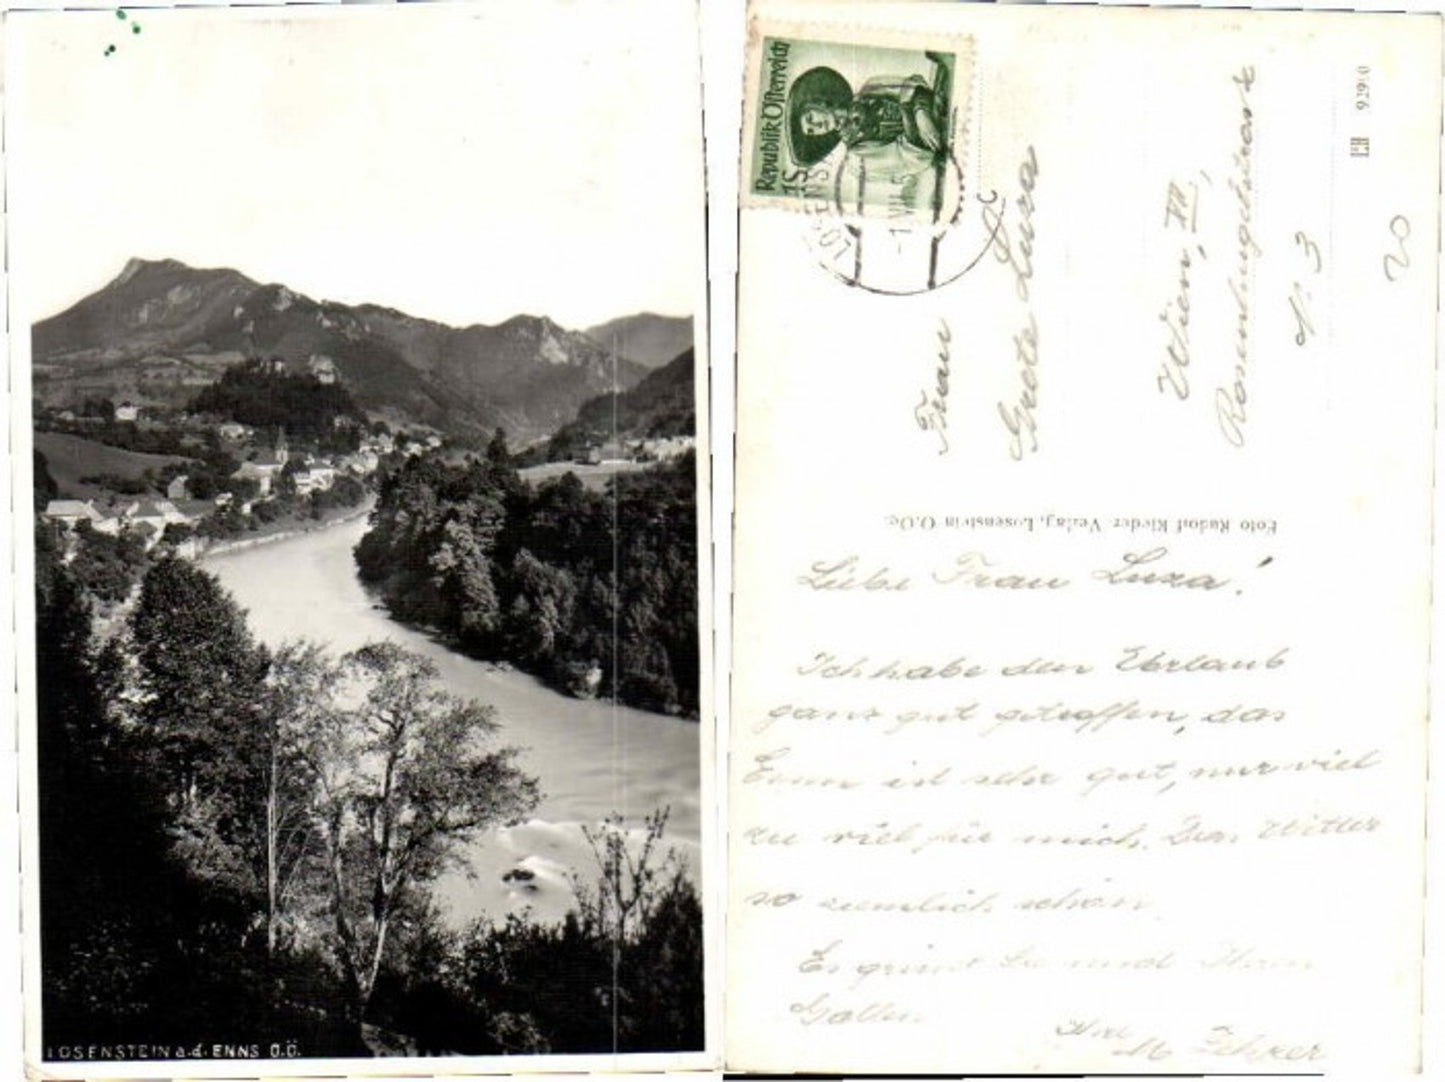 LOSENSTEIN a.d. ENNS O.Ö.
Republik Österreich
1S
LOSENSTEIN
-1.VII.5
Frau
Grete Luza
Wien, VII,
N. 3
20
929 0
Foto Rudolf Rieder Verlag, Losenstein O.Oe.
Liebe Frau Luza!
Ich habe den Uhrlaub
ganz gut getroffen, das
Essen ist sehr gut, nur viel
zu viel für mich. Das Wetter
so ziemlich schön.
Es grüsst Sie und Ihren
Gatten